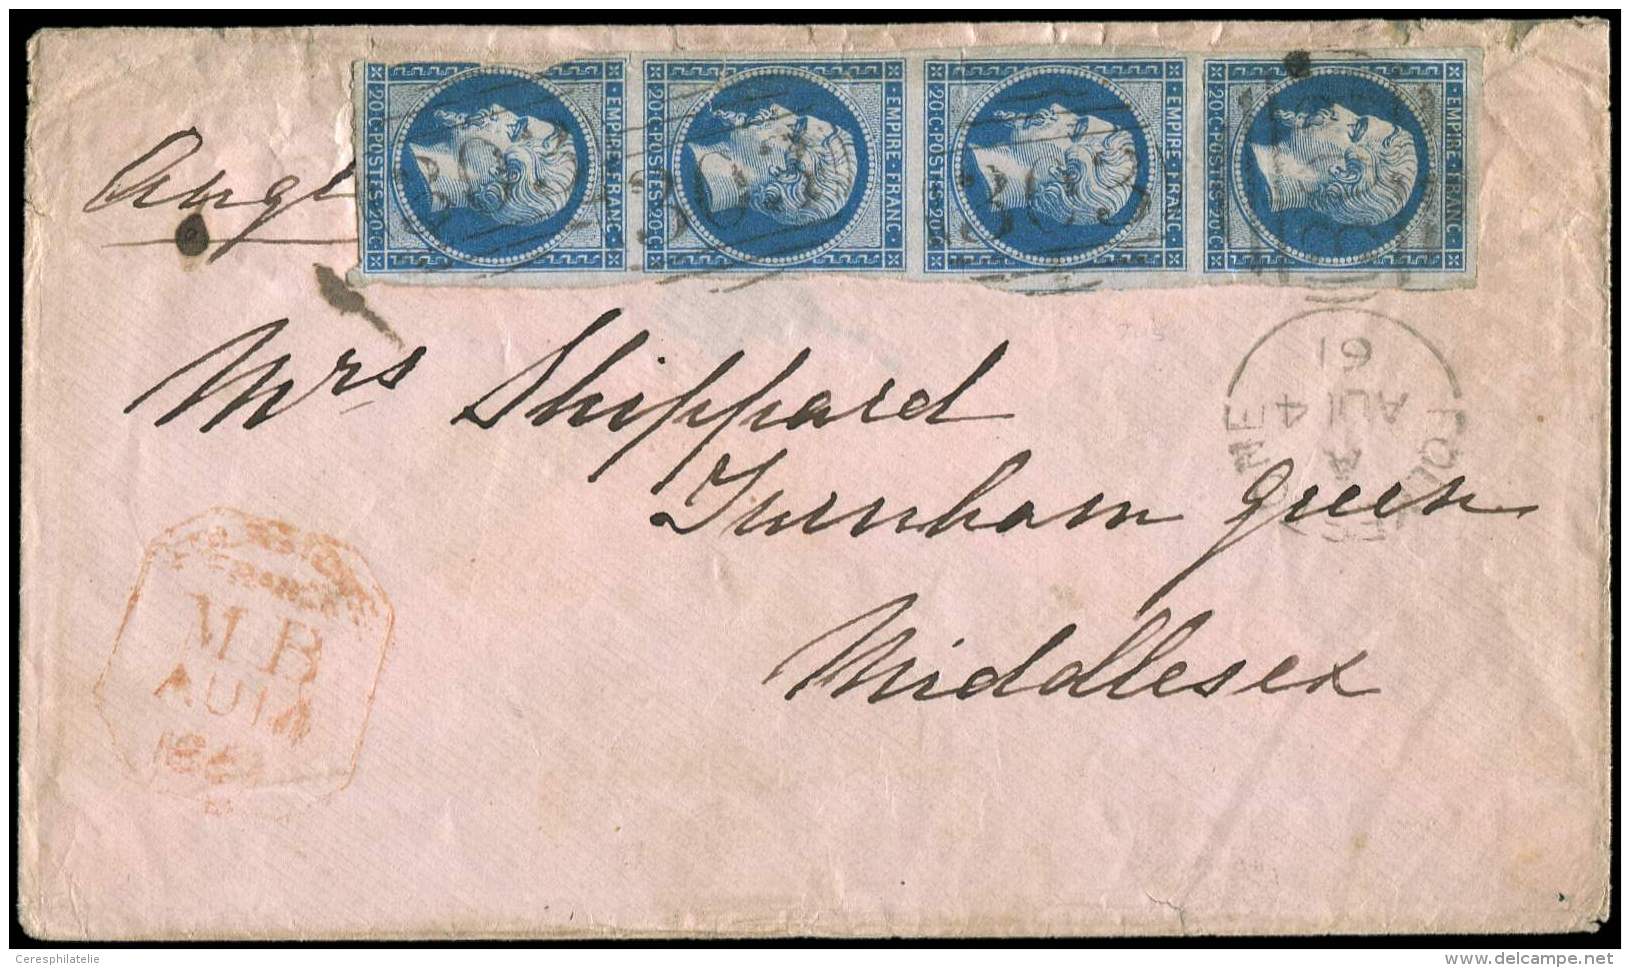 EMPIRE·FRANC·
20·C·POSTES·20·C
EMPIRE·FRANC·
20·C·POSTES·20·C
EMPIRE·FRANC·
20·C·POSTES·20·C
EMPIRE·FRANC·
20·C·POSTES·20·C
303
303
Angl
Mrs Shippard
Turnham Green
Middlesex
AU 14
61
MB
AU 14
Ceresphilatelie
delcampe.net